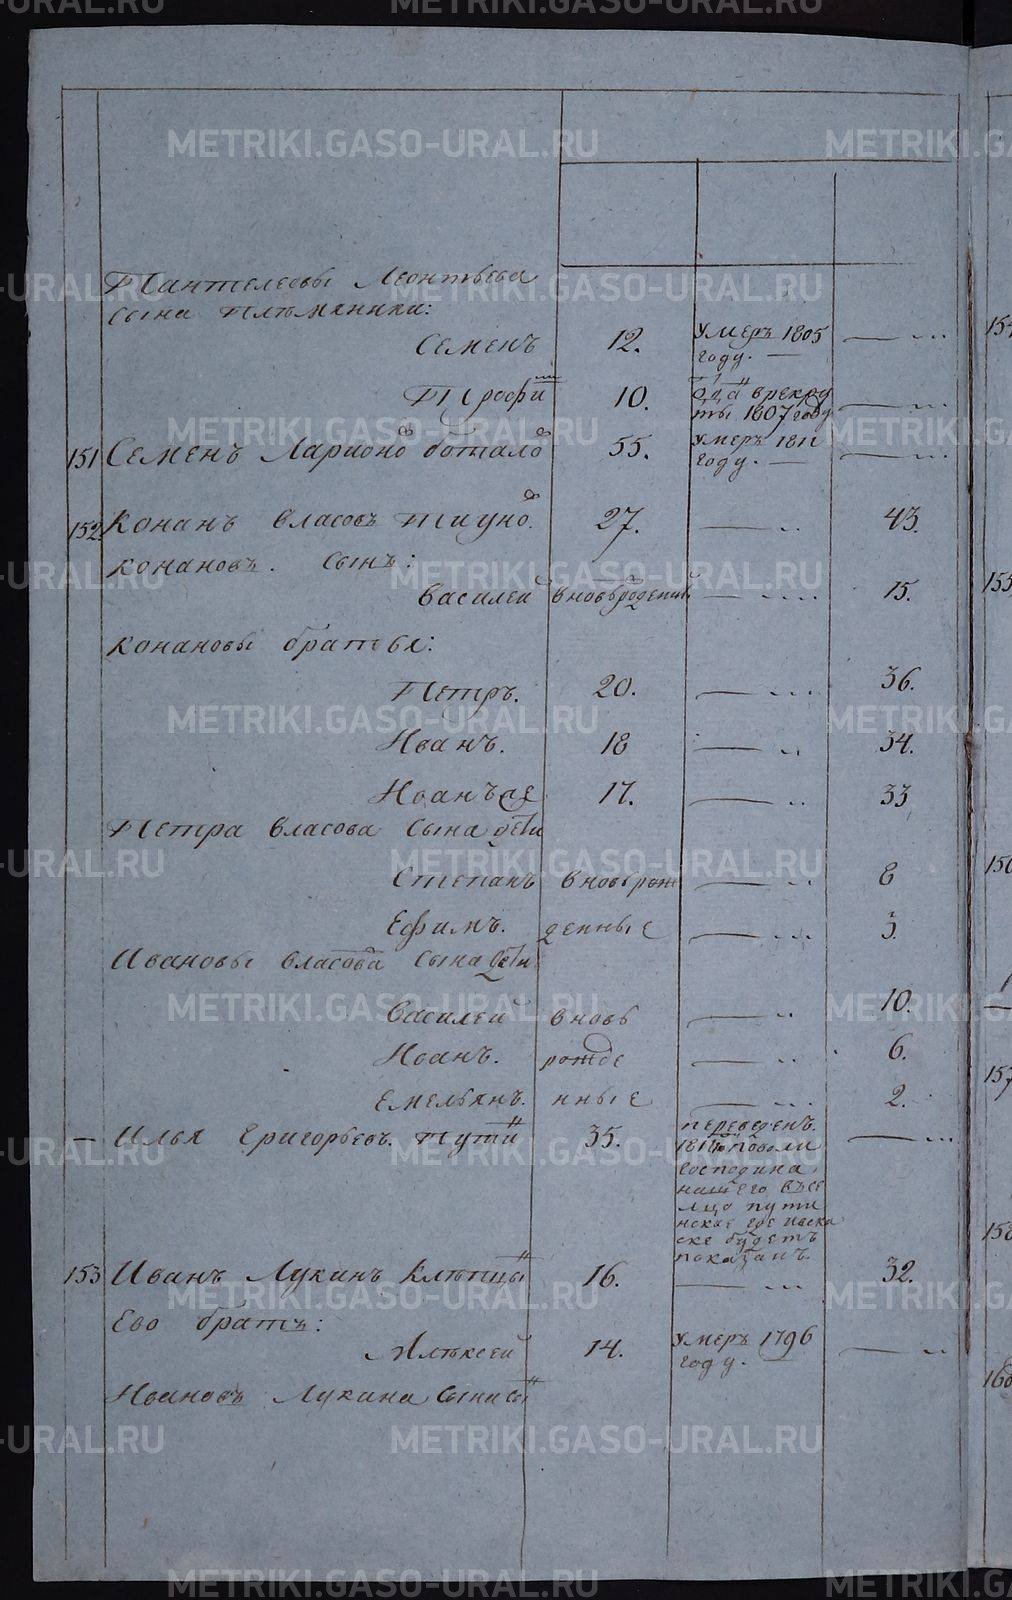 Пантелеевы Леонтьева
сына племянники:
Семенъ 12. умеръ 1805 году. —
Трофимъ 10. отданъ в рекруты 1807 году
151 Семенъ Ларионовъ Боталовъ 55. умеръ 1811 году. —
152. Конанъ Власовъ Тиуновъ. 27. 43.
Конановъ. сынъ:
Василей вновьрожденный 15.
Конановы братья:
Петръ. 20. 36.
Иванъ. 18 34.
Иванъ же 17. 33
Петра Власова сына дети
Степанъ вновьрож 8
Ефимъ. денные 3.
Ивановы Власова сына дети
Василей вновь 10.
Иванъ. рожде 6.
Емельянъ. нные 2.
— Илья Григорьевъ. 35. переведенъ.
1811 по воли
господина
нашего въсе
лцо пути
нское где иваска
ске будетъ
показанъ.
153 Иванъ Лукинъ 16. 32.
Ево братъ:
Алексей 14. умеръ 1796 году.
Ивановъ Лукина сына сынъ
154
155
156
157
158
160
METRIKI.GASO-URAL.RU